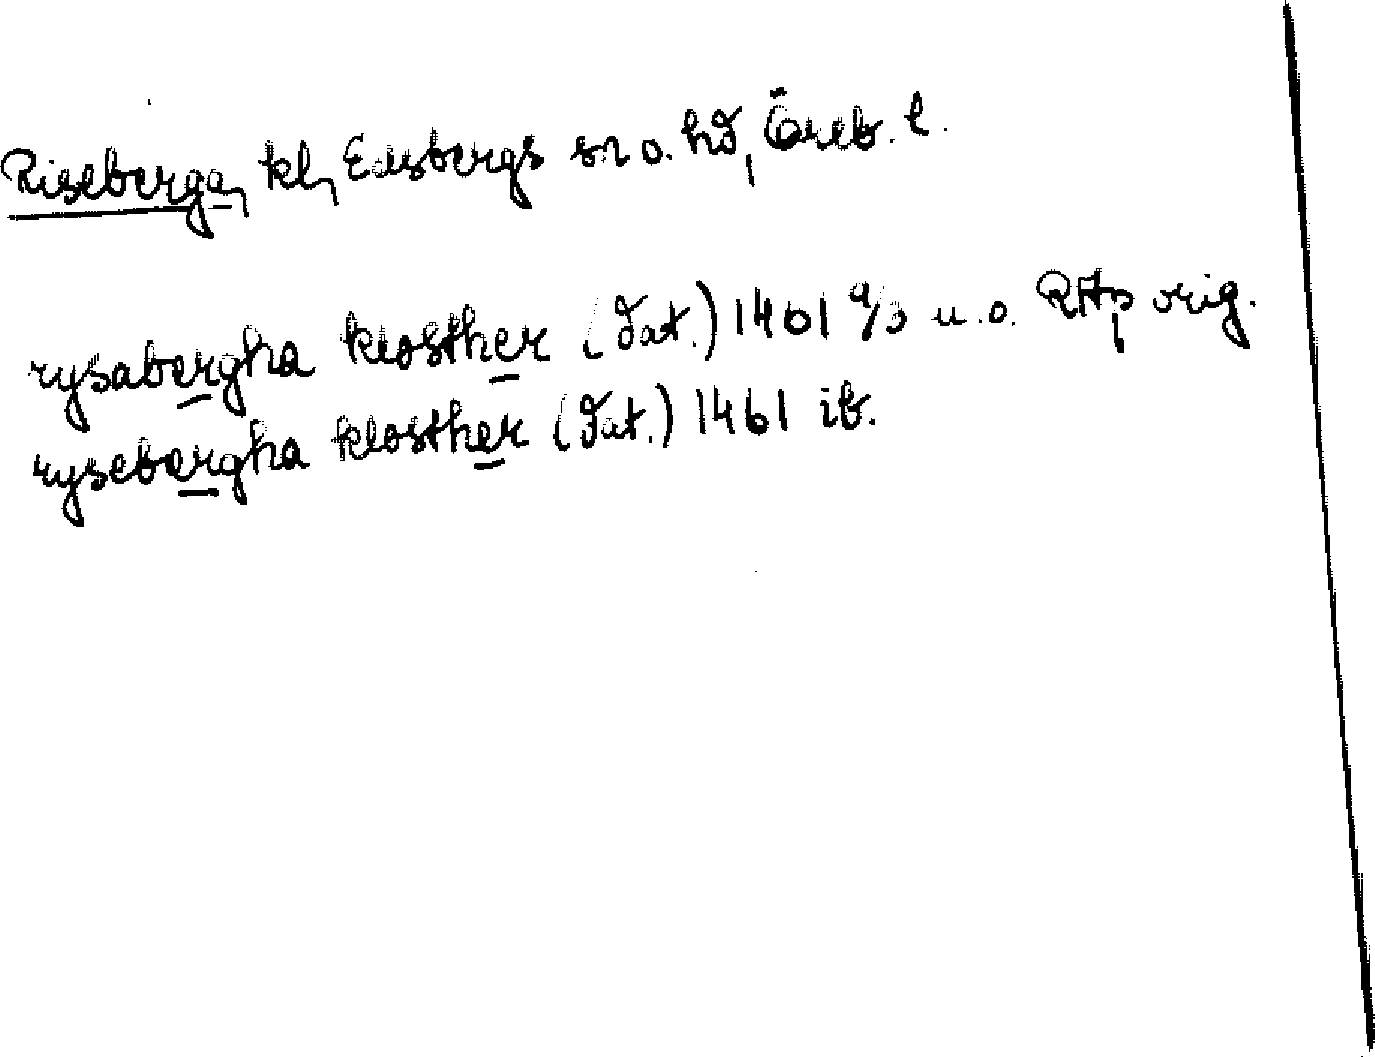 Riseberga, kl, Edsbergs sn o. hd, Öreb. l.
rysabergha kloster (dat.) 1461 9/3 u.o. RAp orig.
rysebergha klosther (dat.) 1461 ib.